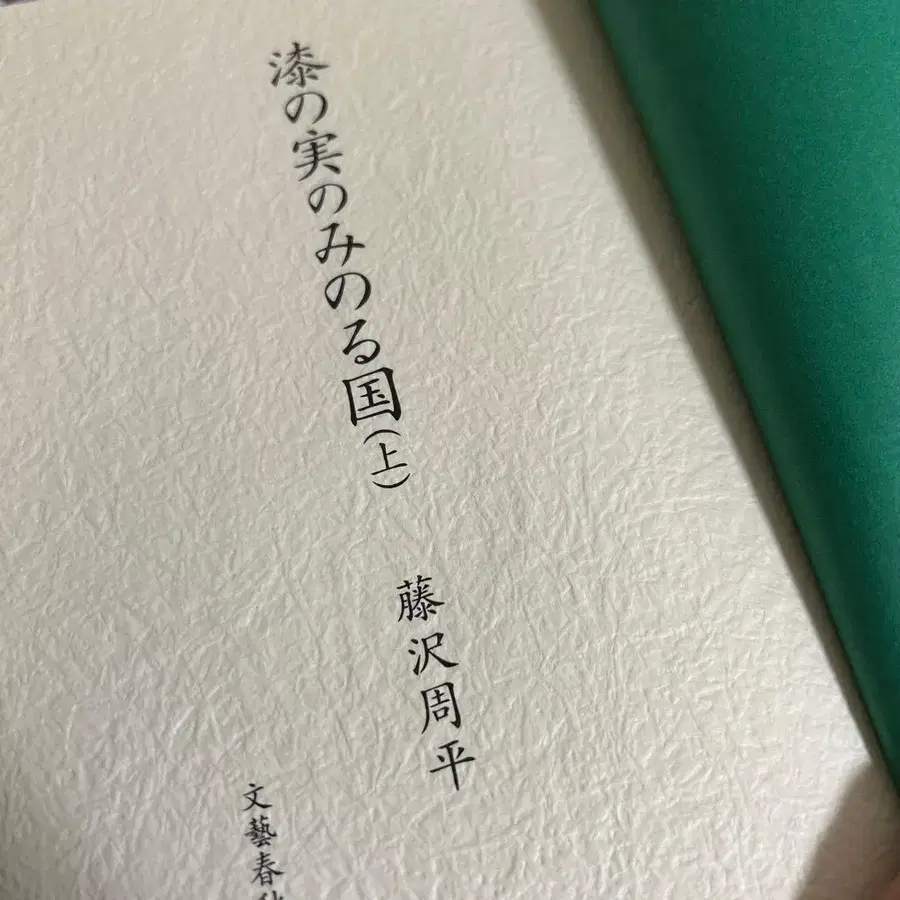 漆の実のみのる国(上)
藤沢周平
文藝春秋